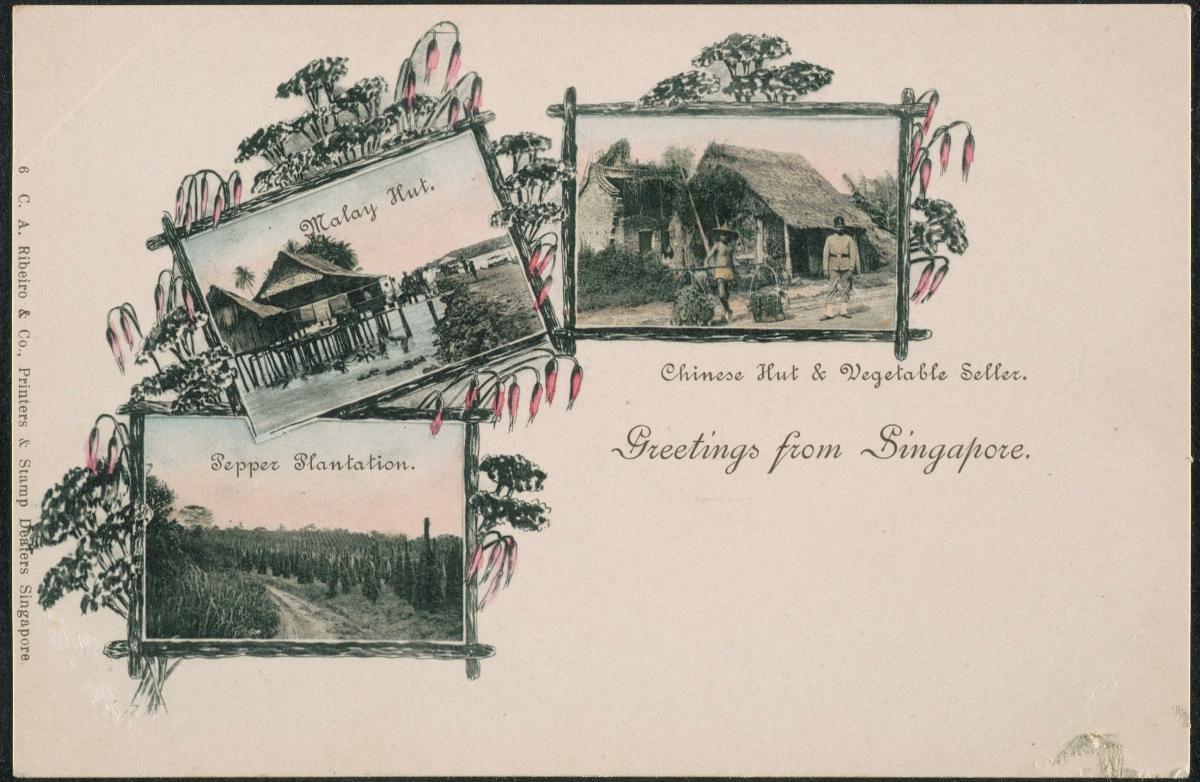 Malay Hut.
Chinese Hut & Vegetable Seller.
Greetings from Singapore.
Pepper Plantation.
6 C. A. Ribeiro & Co., Printers & Stamp Dealers Singapore